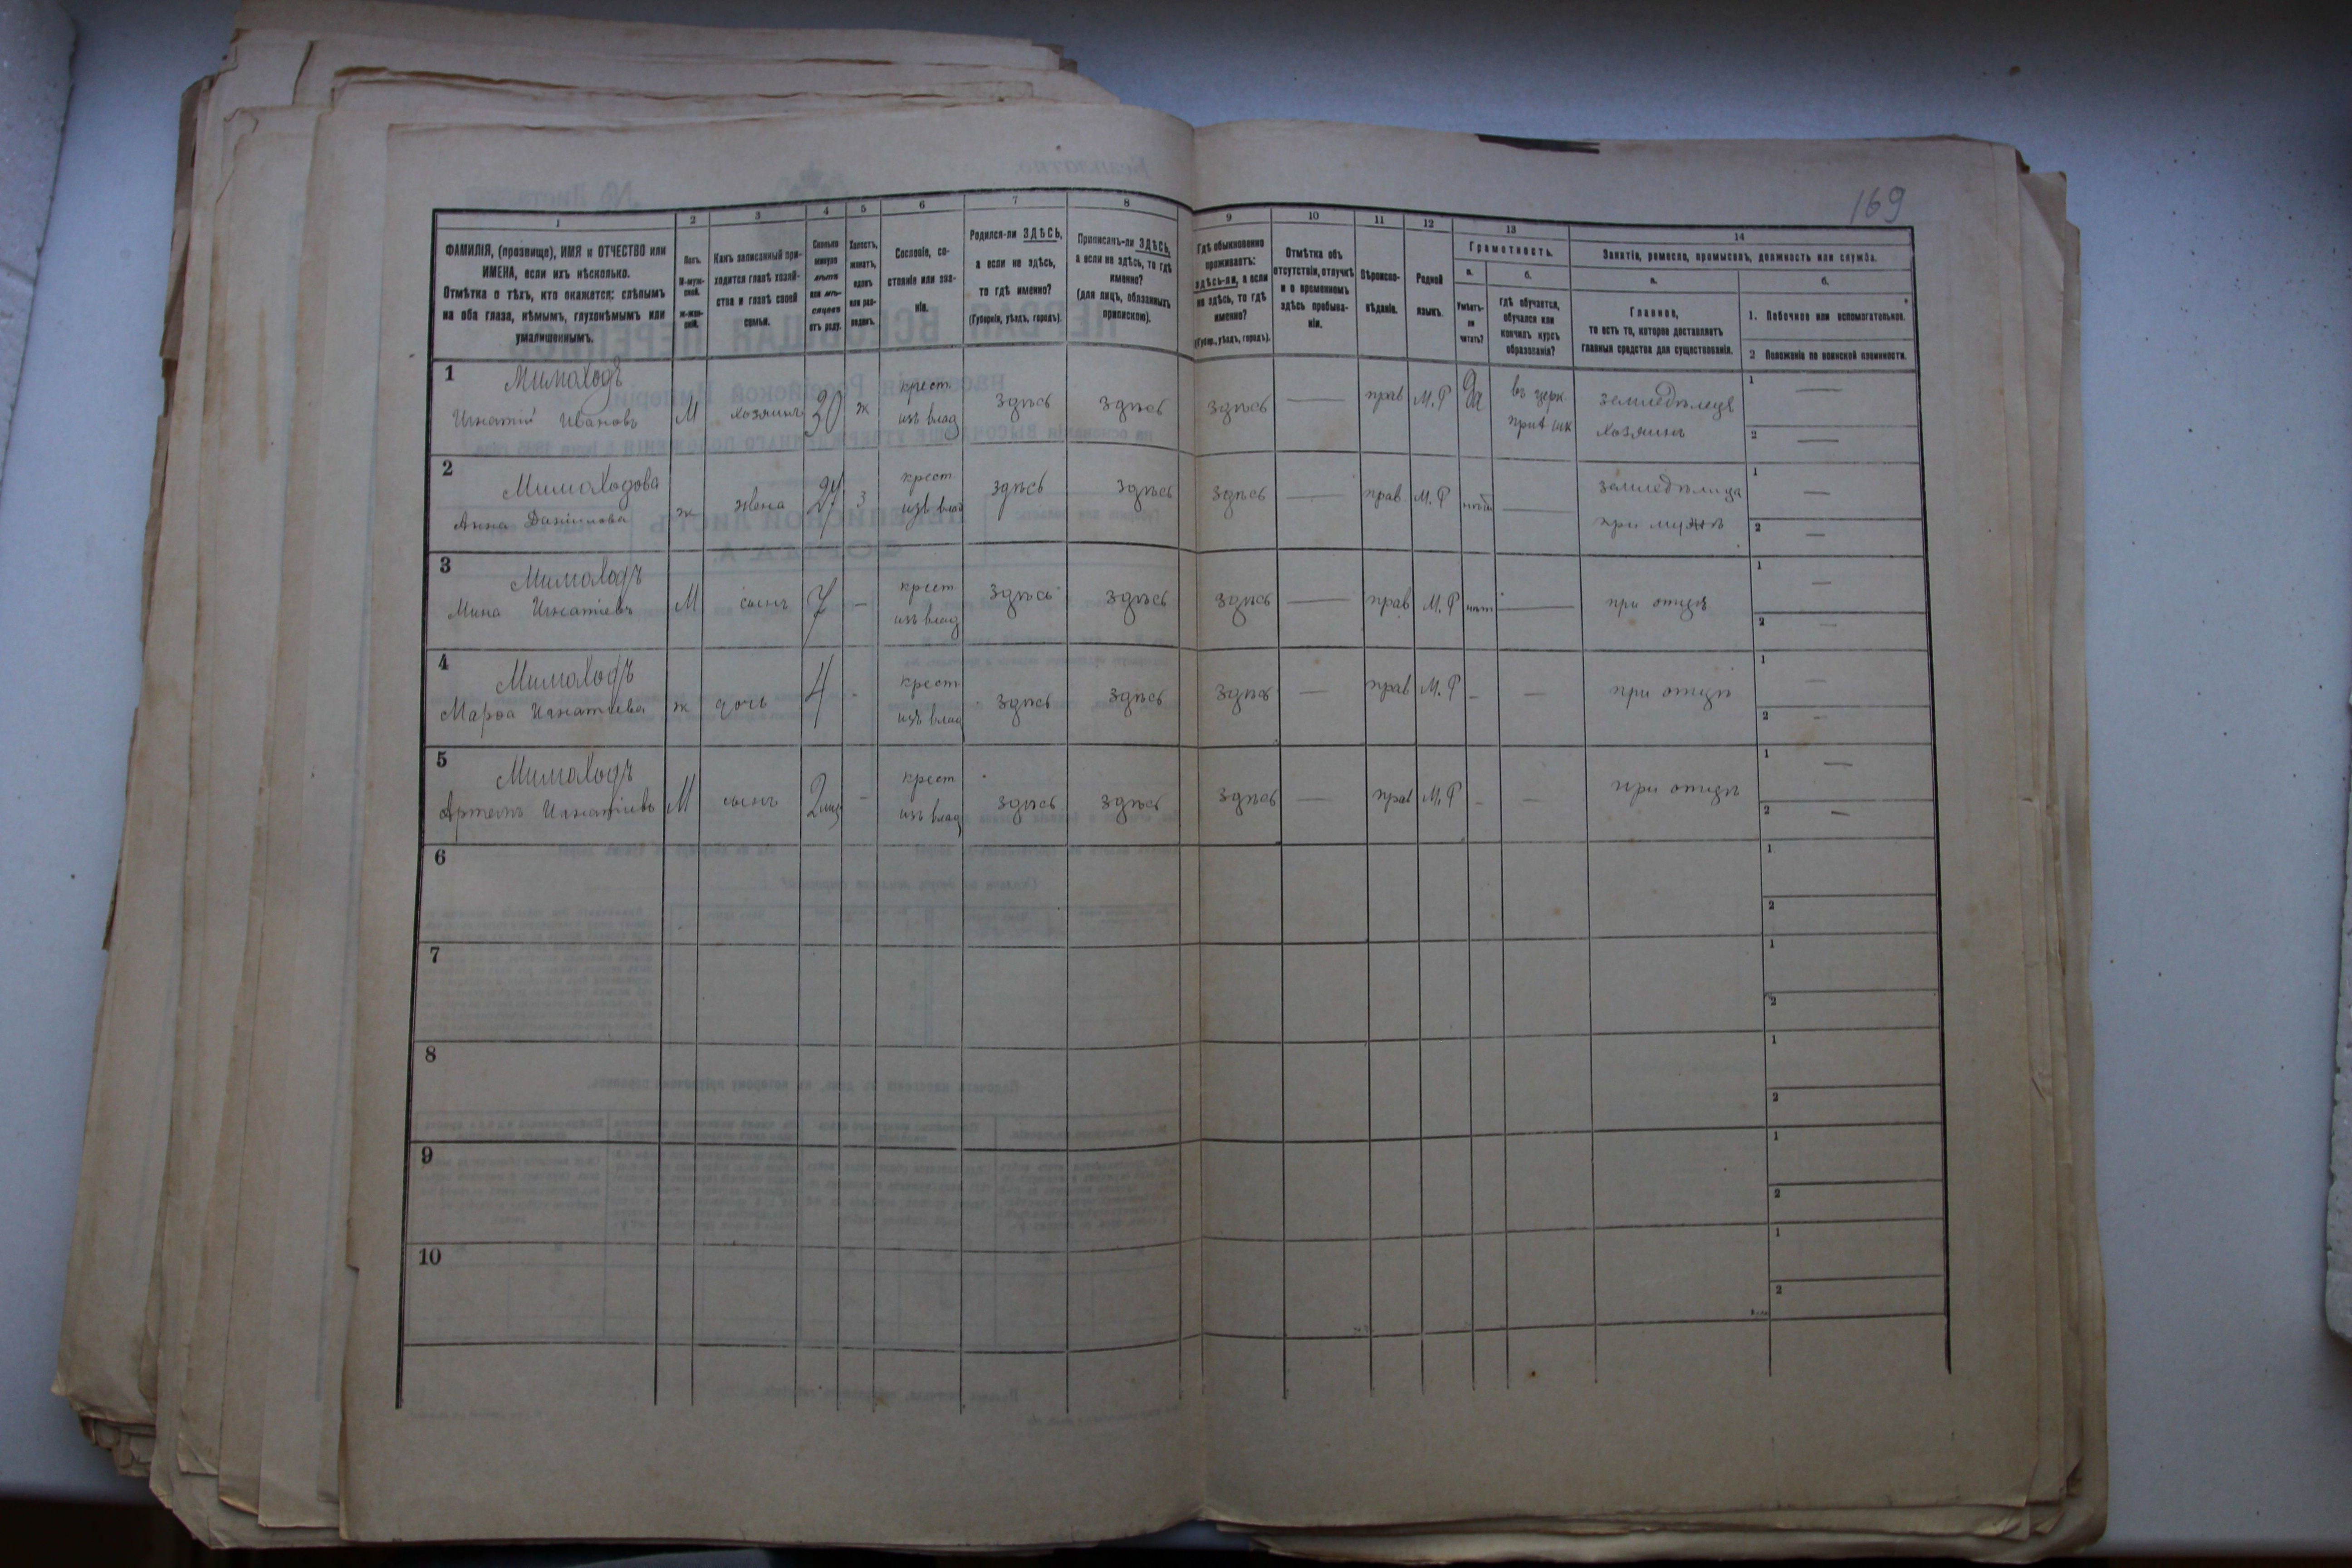 169
1
2
3
4
5
6
7
8
9
10
11
12
13
14
ФАМИЛІЯ, (прозвище), ИМЯ и ОТЧЕСТВО или
ИМЕНА, если ихъ нѣсколько.
Отмѣтка о тѣхъ, кто окажется: слѣпымъ
на оба глаза, нѣмымъ, глухонѣмымъ или
умалишеннымъ.
Полъ.
М-муж-
ской.
ж-жен-
скій.
Какъ записанный при-
ходится главѣ хозяй-
ства и главѣ своей
семьи.
Сколько
минуло
лѣтъ
или мѣ-
сяцевъ
отъ роду.
Холостъ,
женатъ,
вдовъ
или раз-
веденъ.
Сословіе, со-
стояніе или зва-
ніе.
Родился-ли ЗДѢСЬ,
а если не здѣсь,
то гдѣ именно?
(Губернія, уѣздъ, городъ).
Приписанъ-ли ЗДѢСЬ,
а если не здѣсь, то гдѣ
именно?
(для лицъ, обязанныхъ
припискою).
Гдѣ обыкновенно
проживаетъ:
здѣсь-ли, а если
не здѣсь, то гдѣ
именно?
(Губер., уѣздъ, городъ).
Отмѣтка объ
отсутствіи, отлучкѣ
и о временномъ
здѣсь пребыва-
ніи.
Вѣроиспо-
вѣданіе.
Родной
языкъ.
Грамотность.
а.
Умѣетъ-
ли
читать?
б.
гдѣ обучается,
обучался или
кончилъ курсъ
образованія?
Занятіе, ремесло, промыселъ, должность или служба.
а.
Главное,
то есть то, которое доставляетъ
главныя средства для существованія.
б.
1. Побочное или вспомогательное.
2 Положеніе по воинской повинности.
1 Мимоходъ
Игнатій Ивановъ М хозяинъ 30 ж крест. изъ влад здѣсь здѣсь здѣсь — прав М.Р да въ церк. прих шк земледѣлецъ хозяинъ 1 — 2 —
2 Мимоходова
Анна Данилова ж жена 27 з крест изъ влад здѣсь здѣсь здѣсь — прав. М.Р нѣтъ — земледѣлица при мужѣ 1 — 2 —
3 Мимоходъ
Мина Игнатіевъ М сынъ 7 — крест изъ влад здѣсь здѣсь здѣсь — прав М.Р нѣт — при отцѣ 1 — 2 —
4 Мимоходъ
Марѳа Игнатіева ж дочь 4 - крест изъ влад здѣсь здѣсь здѣсь — прав М.Р – — при отцѣ 1 — 2 —
5 Мимоходъ
Артемъ Игнатіевъ М сынъ 2 мц – крест изъ влад здѣсь здѣсь здѣсь — прав М.Р – — при отцѣ 1 — 2 —
6 1 2
7 1 2
8 1 2
9 1 2
10 1 2